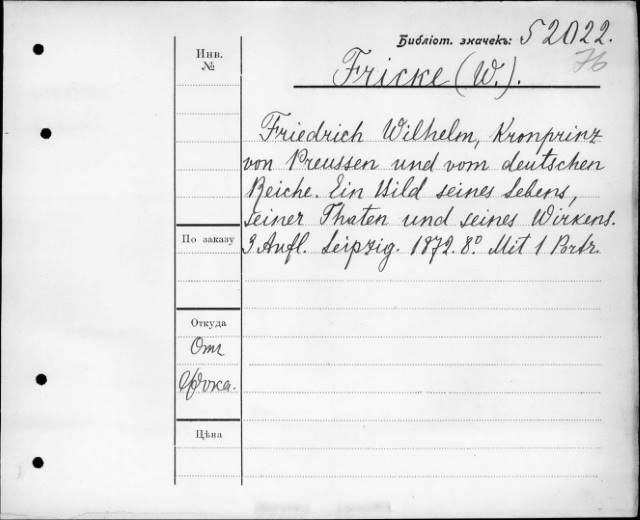 Библіот. значекъ: 52022.
76
Инв.
№
Fricke (W.).
Friedrich Wilhelm, Kronprinz
von Preussen und vom deutschen
Reiche. Ein Bild seines Lebens,
seiner Thaten und seines Wirkens.
3 Aufl. Leipzig. 1872. 8º Mit 1 Portr.
По заказу
Откуда
От
Цѣна